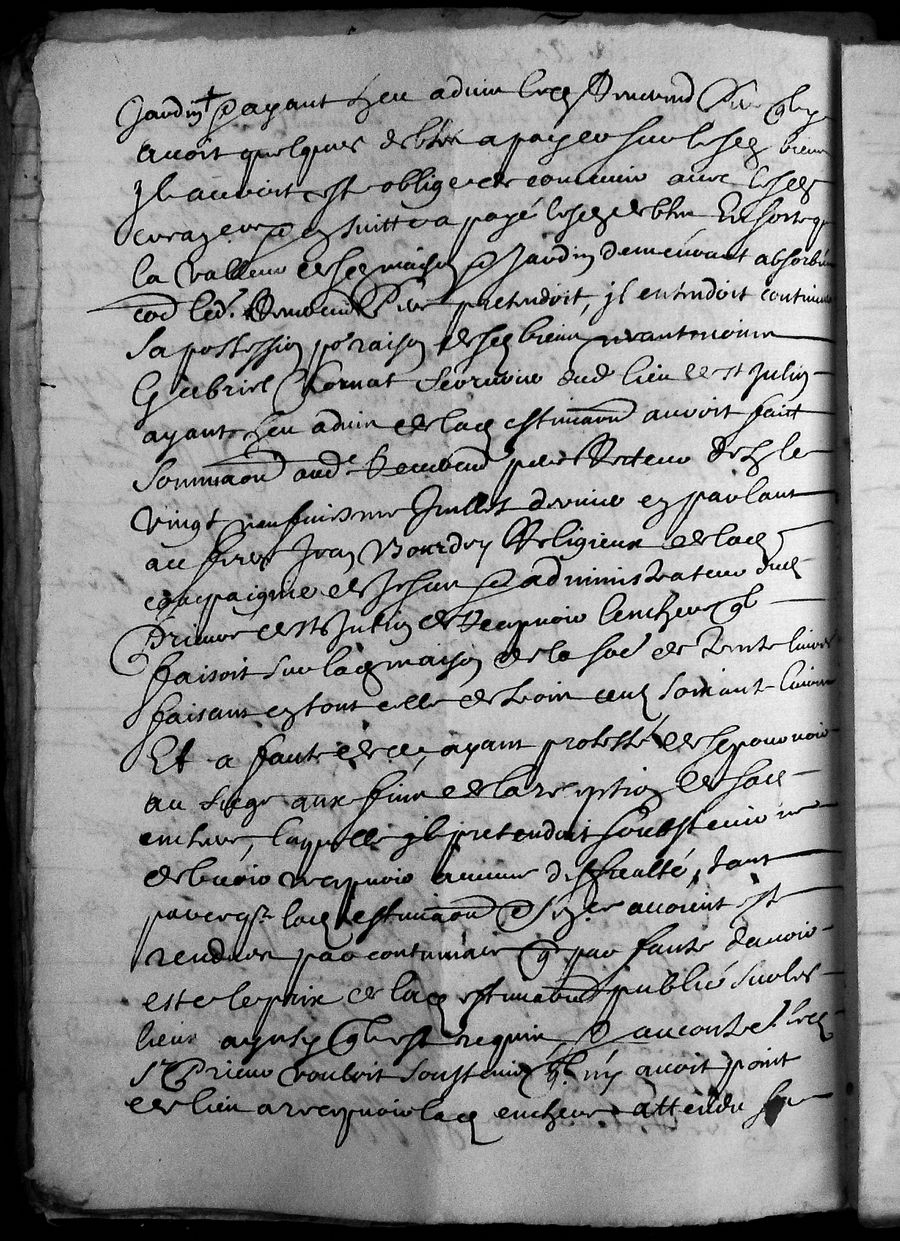 Jardin ayant heu advis Reverend
avoit quelques debtes a payer sur lesd biens
Il auroit esté obligé de convenir avec lesd
en suitte a payé lesd debtes En sorte q
la valleur desd maison & Jardin demeurant absorbée
led. Reverend pretendoit, il entendoit continuer
sa possession po raison desd biens neantmoins
Gabriel dud lieu de st Julin
ayant heu advis de lad estimaon avoit faict
sommaon aud. Reverend pere Recteur le
vingt neufuiesme Juillet dernier en parlant
au frere Jean Bourdon Religieux de lad
compaignie de Jesus & administrateur dud
Prieuré de st Julin de Recepvoir lenchere ql
faisoit sur lad maison de la so de trente livres
faisant en tout celle de trois cens soixante livres
Et a faute de ce, ayant protesté de se pourvoir
au siege aux fins de la reception de sad
enchere, laquelle il pretendoit soubstenir ne
debvoir recepvoir aucune difficulté, tant
parce q lad estimaon avoient esté
rendues par contumace q par faute davoir
esté le prix de lad estimaon publié sur les
lieux ainsy ql est requis, Et au contre led
sr Prieur vouloit soustenir ql ny avoit point
de lieu a recepvoir lad enchere attendu